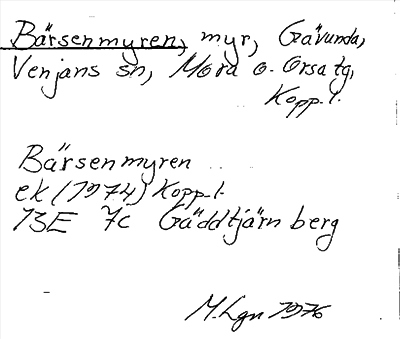 Bärsenmyren, myr, Gävunda,
Venjans sn, Mora o. Orsa tg,
Kopp. l.
Bärsenmyren
ek (1974) Kopp. l.
13E 7c Gäddtjärnberg
M. Lgn 1976